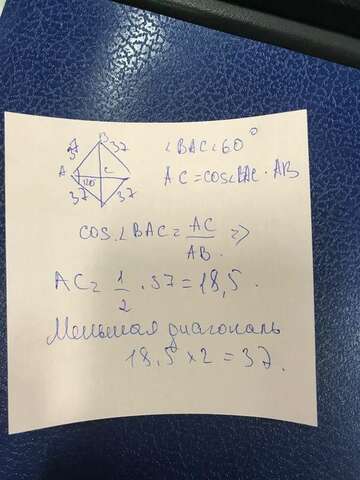 B
37 37
∠BAC<60°
A 120° C
AC=COS∠BAC·AB
37 37
COS.∠BAC=AC/AB. =>
AC=1/2·37=18,5.
Меньшая диагональ
18,5×2=37.